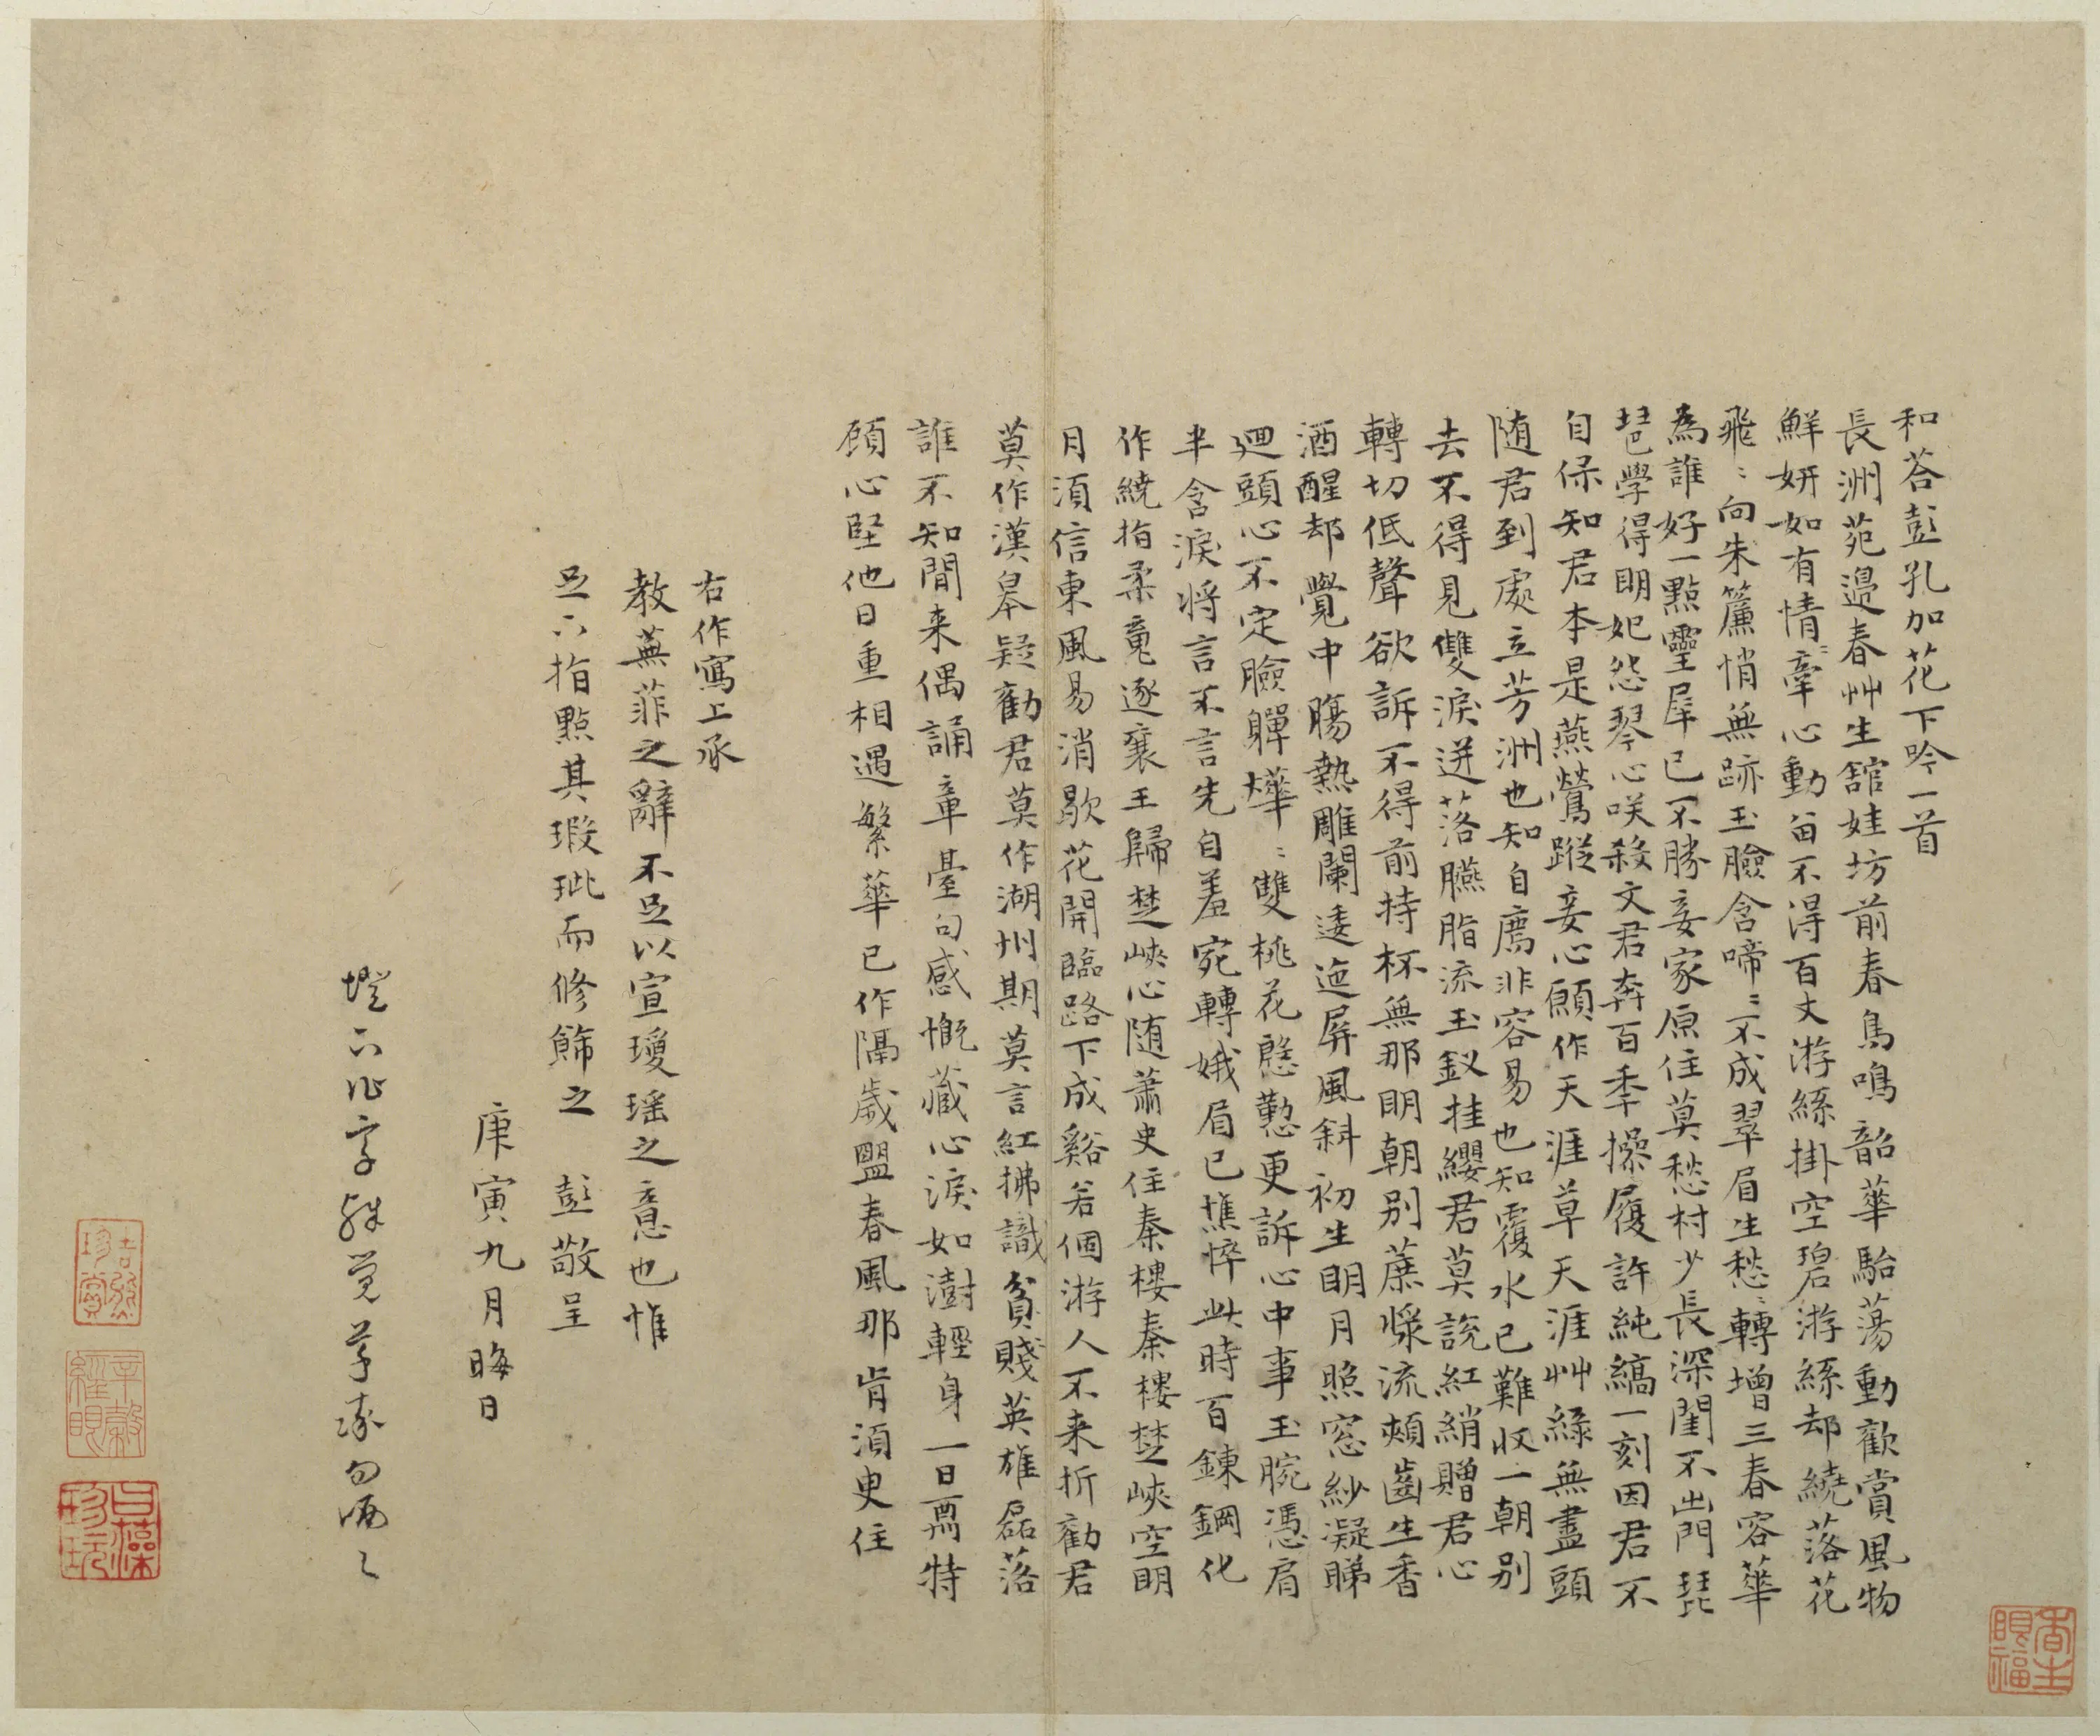 和荅彭孔加花下吟一首
長洲苑邉春艸生舘娃坊前春鳥鳴韶華駘蕩動歡賞風物
鮮妍如有情牽心動畱不得百丈游絲掛空碧游絲却繞落花
飛〻向朱簾悄無跡玉臉含啼〻不成翠眉生愁轉增三春容華
為誰好一點靈犀已不勝妾家原住莫愁村少長深閨不出門琵
琶學得明妃怨琴心咲殺文君奔百年操履許純縞一刻因君不
自保知君本是燕鶯蹤妾心願作天涯草天涯艸綠無盡頭
随君到處立芳洲也知自廌非容易也知覆水已難収一朝别
去不得見雙淚迸落臙脂流玉釵挂纓君莫說紅綃贈君心
轉切低聲欲訴不得前持杯無那明朝别蔗漿流頰齒生香
酒醒却覺中腸熱雕闌逶迤屏風斜初生明月照窓紗凝睇
迴頭心不定臉軃燁〻雙桃花慇懃更訴心中事玉腕憑肩
半含淚將言不言先自羞宛轉娥眉已憔悴此時百鍊鋼化
作繞指柔竟逐襄王歸楚峽心随蕭史住秦樓秦樓楚峽空明
月湏信東風易消歇花開臨路下成谿若個游人不来折勸君
莫作漢皋疑勸君莫作湖州期莫言紅拂識貧賤英雄磊落
誰不知閒来偶誦章臺句感慨藏心淚如澍輕身一日爲特
顧心堅他日重相遇繁華已作隔歲盟春風那肯湏臾住
右作寫上承
教蕪菲之辭不足以宣瓊瑶之意也惟
足下指點其瑕玼而修篩之 彭敬呈
庚寅九月晦日